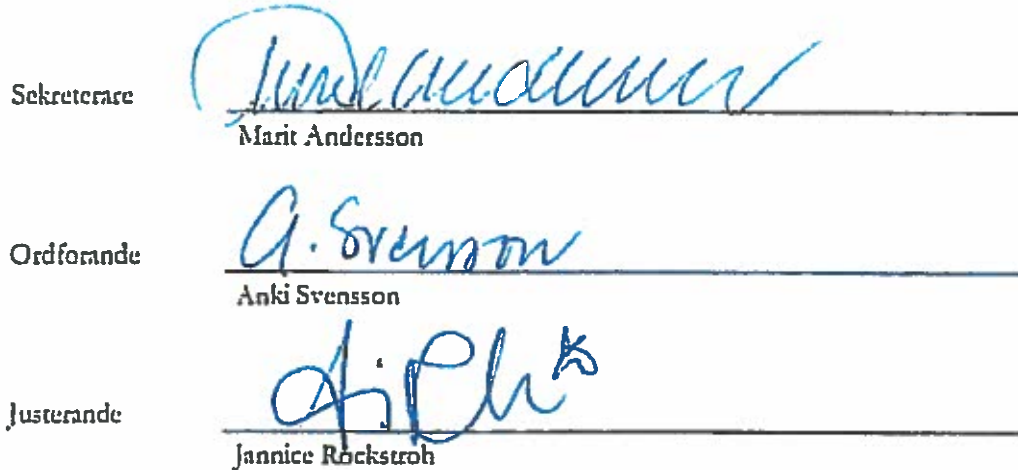 Sekreterare
Marit Andersson
A. Svensson
Ordförande
Anki Svensson
Justerande
Jannice Rockstroh